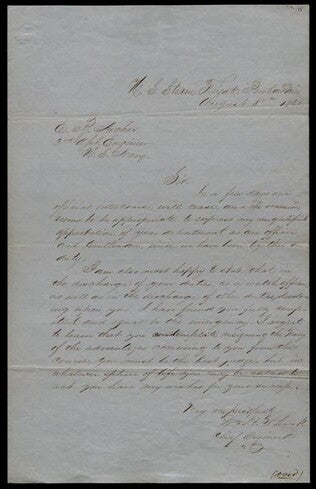 U.S. Steam Frigt. Powhatan
August 5th
E. R. Archer
3rd Asst. Engineer
U.S. Navy.
Sir
In a few days our
official intercourse will cease, and the occasion
seems to be appropriate to express my unqualified
approbation of your deportment as an officer
and Gentleman, since we have been together on
duty.
I am also most happy to state that in
the discharge of your duties, as a watch officer,
as well as in the discharge of other duties devolv-
ing upon you, I have found you fully compe-
tent and equal to an emergency. I regret
to learn that you contemplate resigning. In view
of the advantages accruing to you from this
course you must be the best judge; but in
whatever sphere of life you may be called to
act, you have my wishes for your success.
Very respectfully
Wm. H. Shock
Chief Engineer
(over)